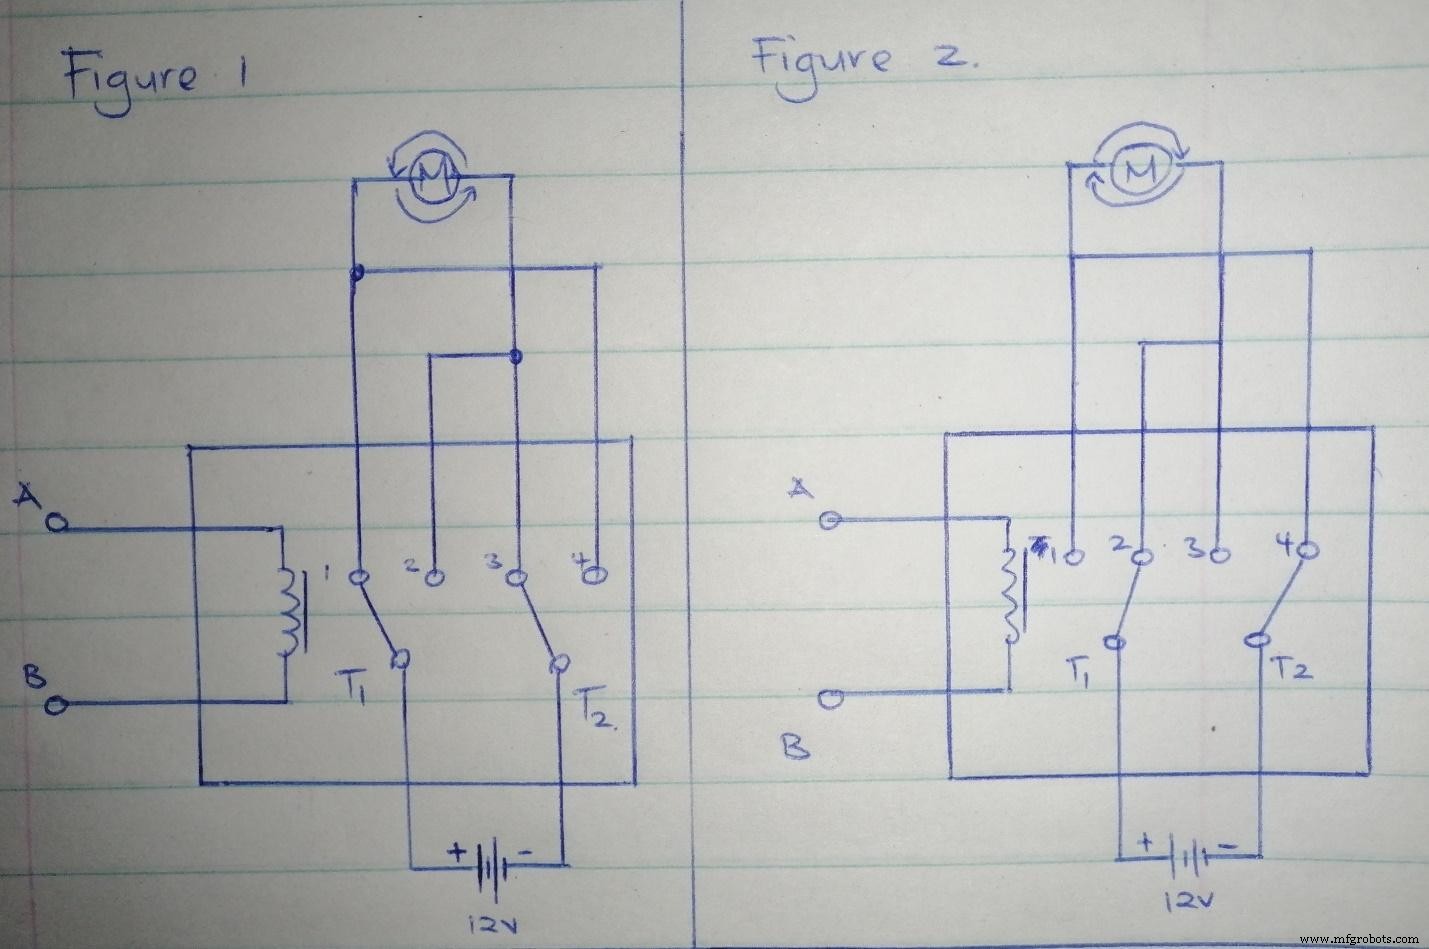 Figure 1
M
A
1 2 3 4
B
T1
T2.
+ -
12V
Figure 2.
M
A
1 2 3 4
T1 T2
B
+ -
12V
www.mfgrobots.com